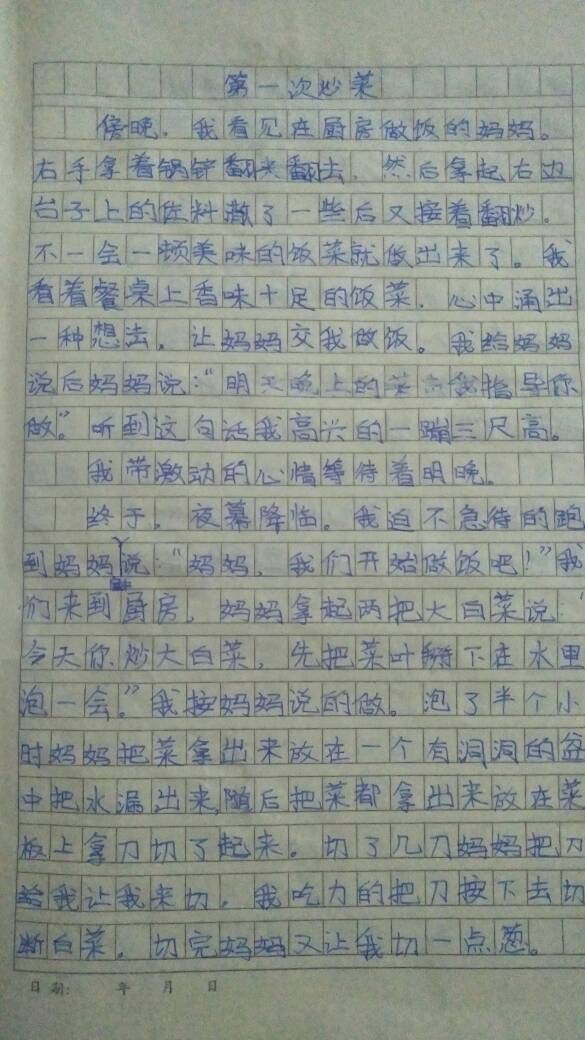 第一次炒菜
傍晚，我看见在厨房做饭的妈妈。
右手拿着锅铲翻来翻去，然后拿起右边
台子上的佐料撒了一些后又接着翻炒。
不一会一顿美味的饭菜就做出来了。我
看着餐桌上香味十足的饭菜，心中涌出
一种想法，让妈妈交我做饭。我给妈妈
说后妈妈说：“明天晚上的菜我指导你
做。”听到这句话我高兴的一蹦三尺高。
我带激动的心情等待着明晚。
终于，夜幕降临。我迫不急待的跑
到妈妈说：“妈妈，我们开始做饭吧！”我
们来到厨房，妈妈拿起两把大白菜说：“
今天你炒大白菜，先把菜叶掰下在水里
泡一会。”我按妈妈说的做。泡了半个小
时妈妈把菜拿出来放在一个有洞洞的盆
中把水漏出来，随后把菜都拿出来放在菜
板上拿刀切了起来。切了几刀妈妈把刀
给我让我来切，我吃力的把刀按下去切
断白菜。切完妈妈又让我切一点葱。
日期： 年 月 日